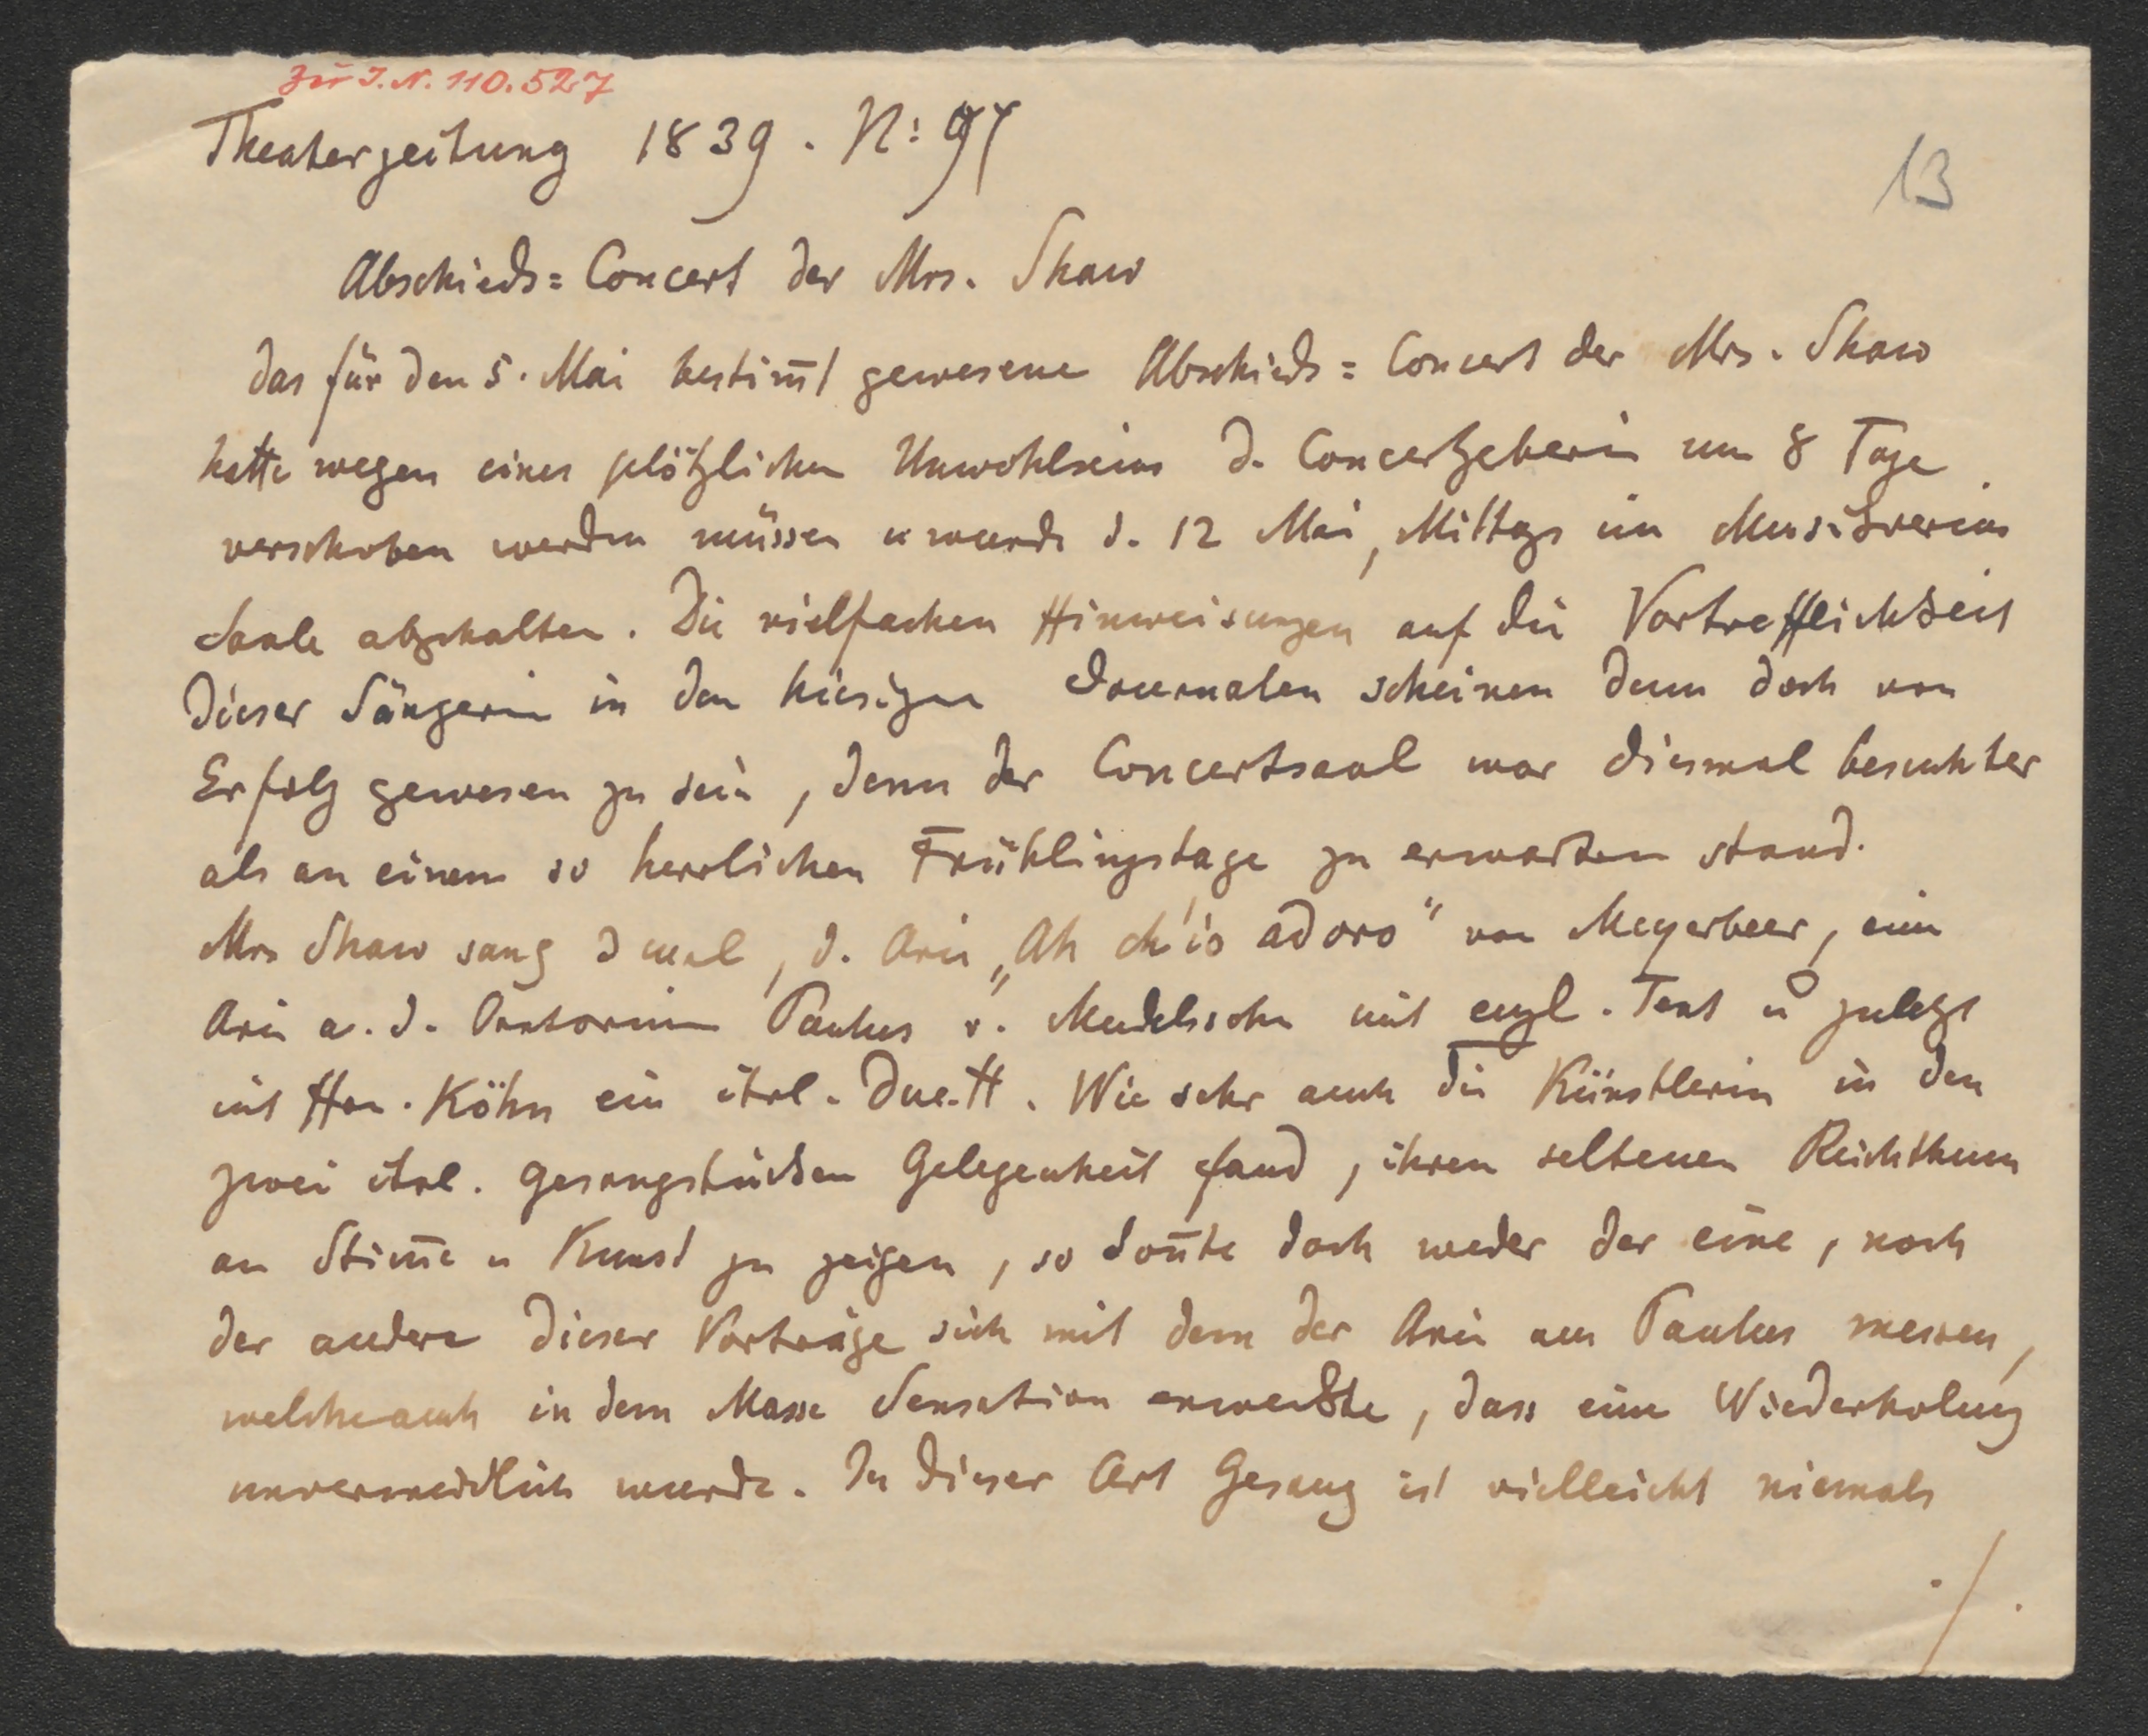 Zur I.N. 110.527
Theaterzeitung 1839. N: 97
13
Abschieds=Concert der Mrs. Shaw
Das für den 5. Mai bestim̅t gewesene Abschieds=Concert der Mrs. Shaw
hatte wegen eines plötzlichen Unwohlseins d. Concertgeberin um 8 Tage
verschoben werden müssen u wurde d. 12 Mai, Mittags im Musikvereins
Saale abgehalten. Die vielfachen Hinweisungen auf die Vortrefflichkeit
dieser Sängerin in den hiesigen Journalen scheinen denn doch von
Erfolg gewesen zu sein, denn der Concertsaal war diesmal besuchter
als an einem so herrlichen Frühlingstage zu erwarten stand.
Mrs Shaw sang 3 mal, d. Arie „Ah ch'io adoro“ von Meyerbeer, eine
Arie a. d. Oratorium Paulus v. Mendelssohn mit engl. Text u zuletzt
mit Hrn. Köhn ein ital. Duett. Wie sehr auch die Künstlerin in den
zwei ital. Gesangstücken Gelegenheit fand, ihren seltenen Reichthum
an Stim̅e u Kunst zu zeigen, so kon̅te doch weder der eine, noch
der andere dieser Vorträge sich mit dem der Arie aus Paulus messen,
welche auch in dem Masse Sensation erweckte, dass eine Wiederholung
unvermeidlich wurde. In dieser Art Gesang ist vielleicht niemals
./.